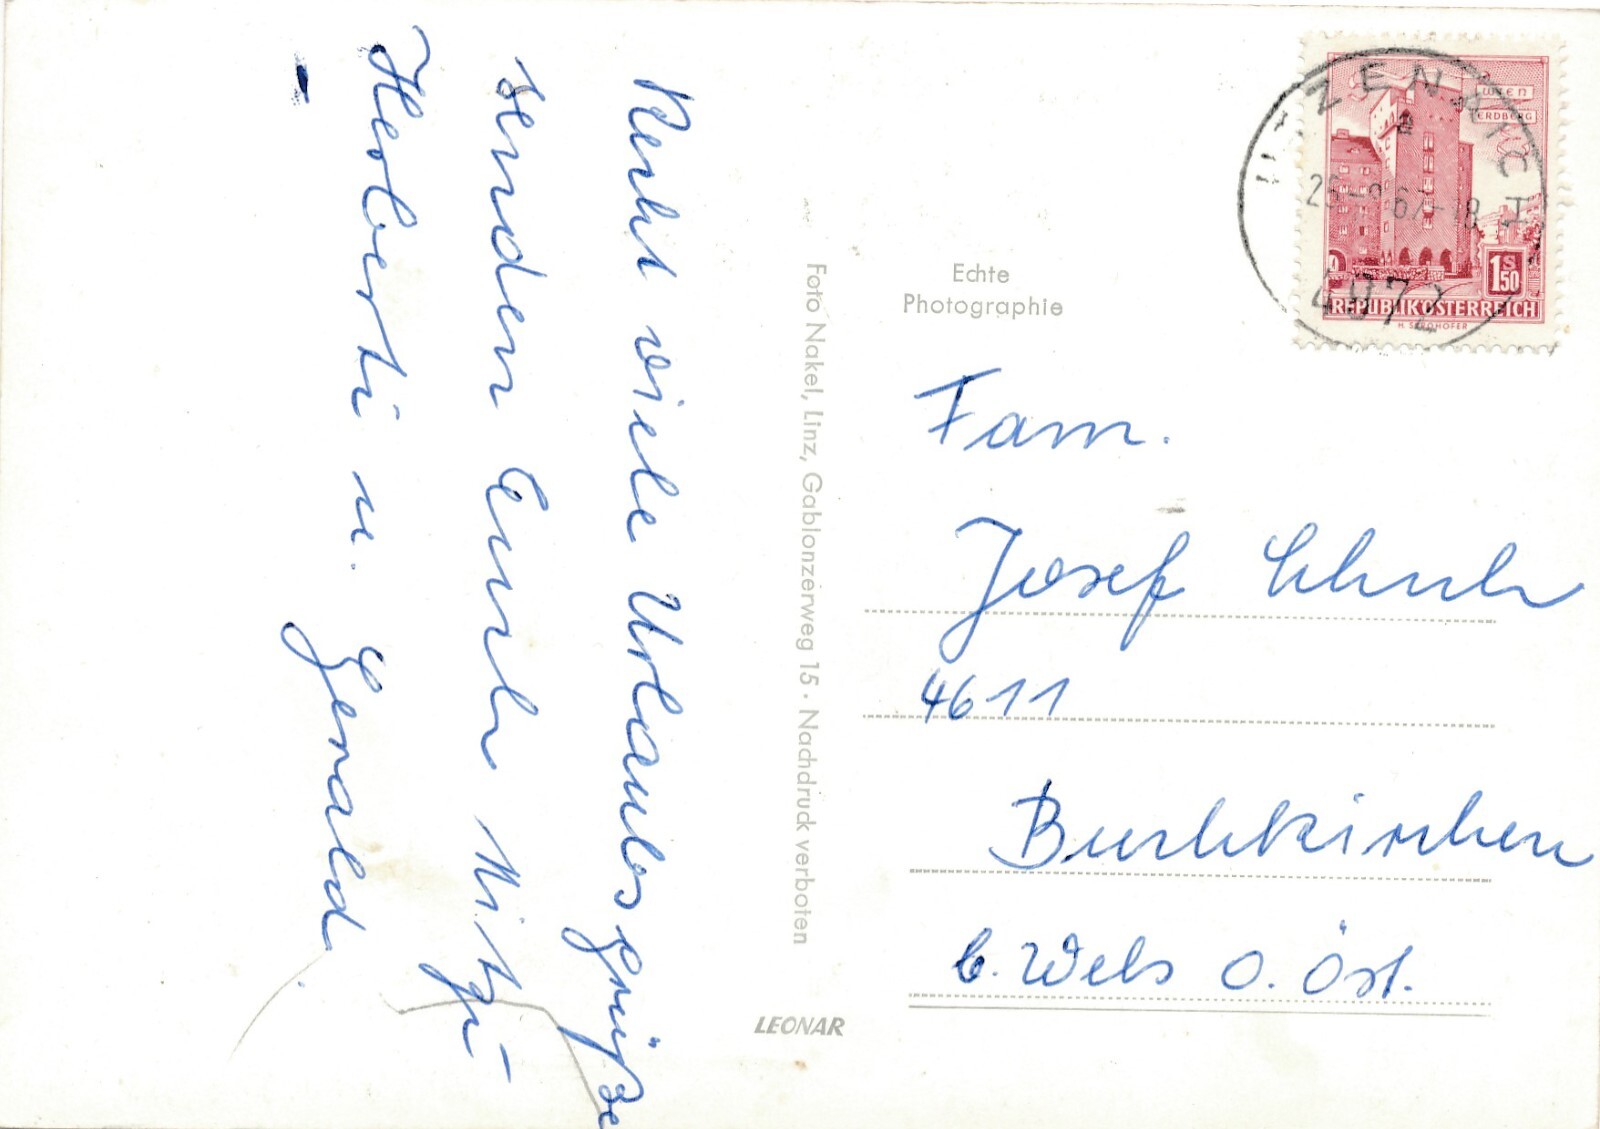 Recht viele Urlaubsgrüße
senden Euch Mitzi
Herberti u. Gerald.
Foto Nakel, Linz, Gablonzerweg 15 · Nachdruck verboten
LEONAR
Echte
Photographie
WIEN
ERDBERG
1S50
REPUBLIK ÖSTERREICH
UTZENAICH
4972
Fam.
Josef
4611
Buchkirchen
b. Wels O. Öst.